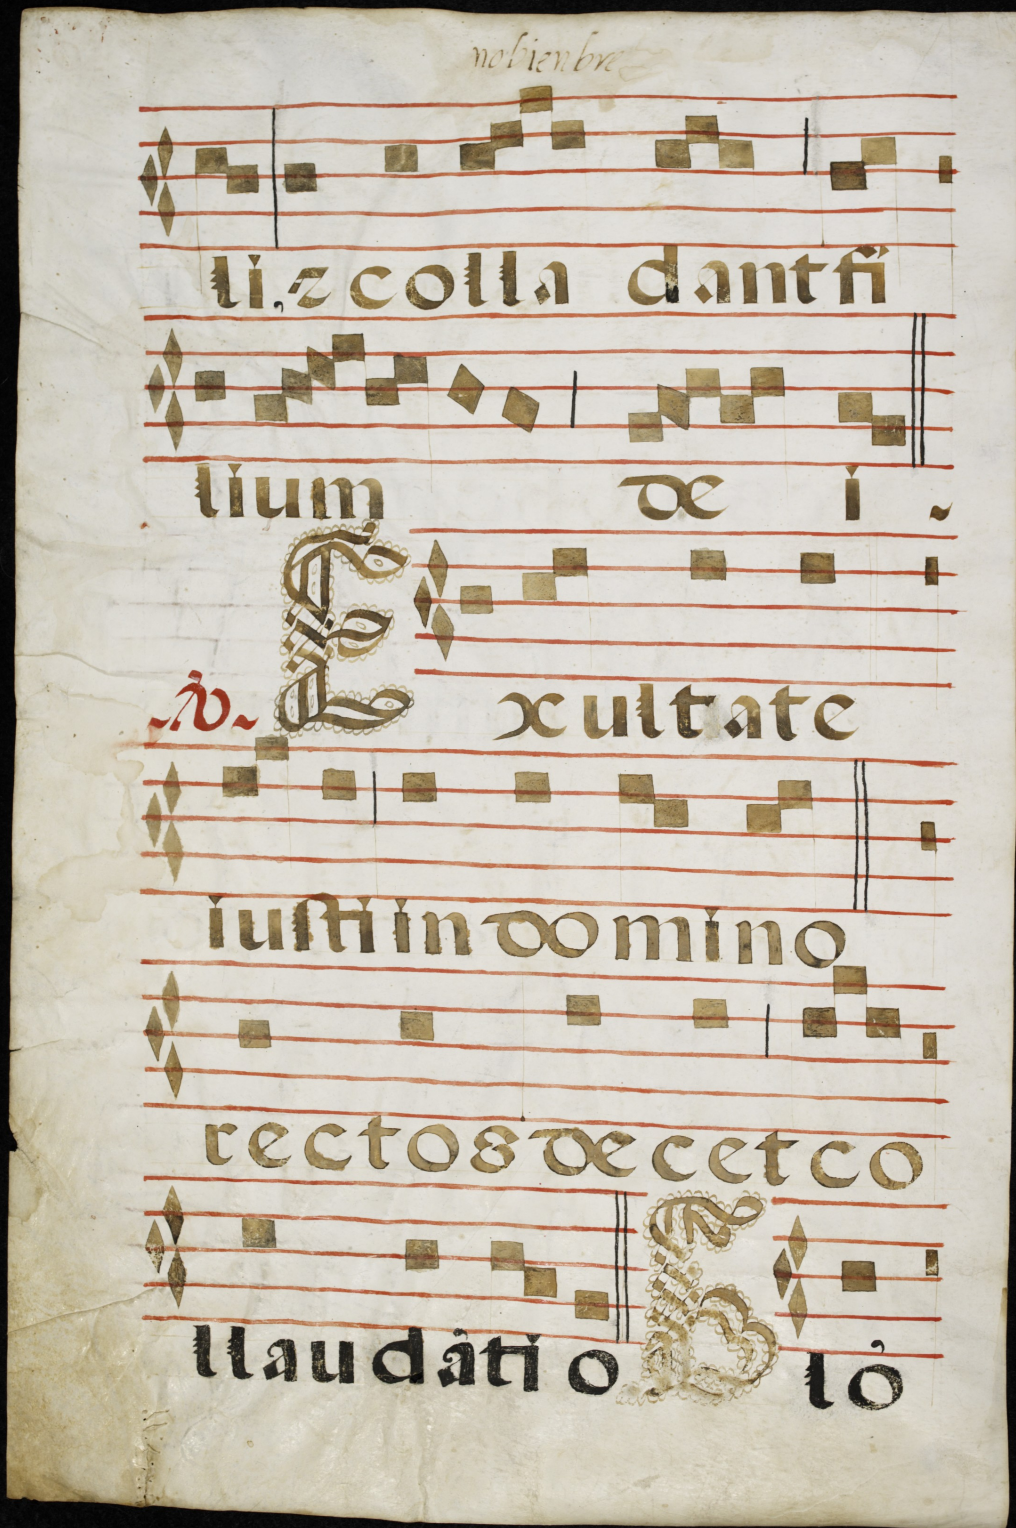 nobienbre
li, z colla dant fi
lium de i
Exultate
iusti in domino
rectos decet co
llaudatio
lo